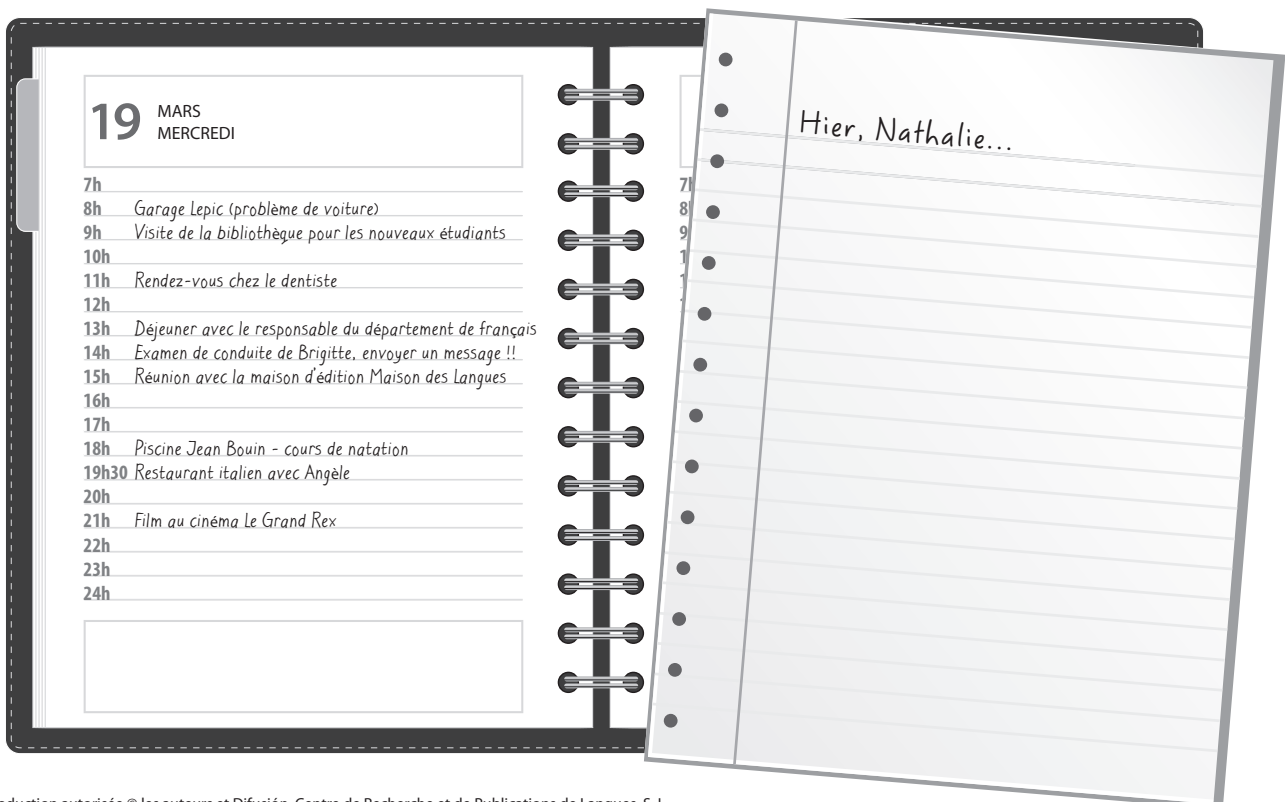 19 MARS
MERCREDI
7h
8h Garage Lepic (problème de voiture)
9h Visite de la bibliothèque pour les nouveaux étudiants
10h
11h Rendez-vous chez le dentiste
12h
13h Déjeuner avec le responsable du département de français
14h Examen de conduite de Brigitte, envoyer un message !!
15h Réunion avec la maison d'édition Maison des Langues
16h
17h
18h Piscine Jean Bouin - cours de natation
19h30 Restaurant italien avec Angèle
20h
21h Film au cinéma Le Grand Rex
22h
23h
24h
7h
8
9
1
Hier, Nathalie...